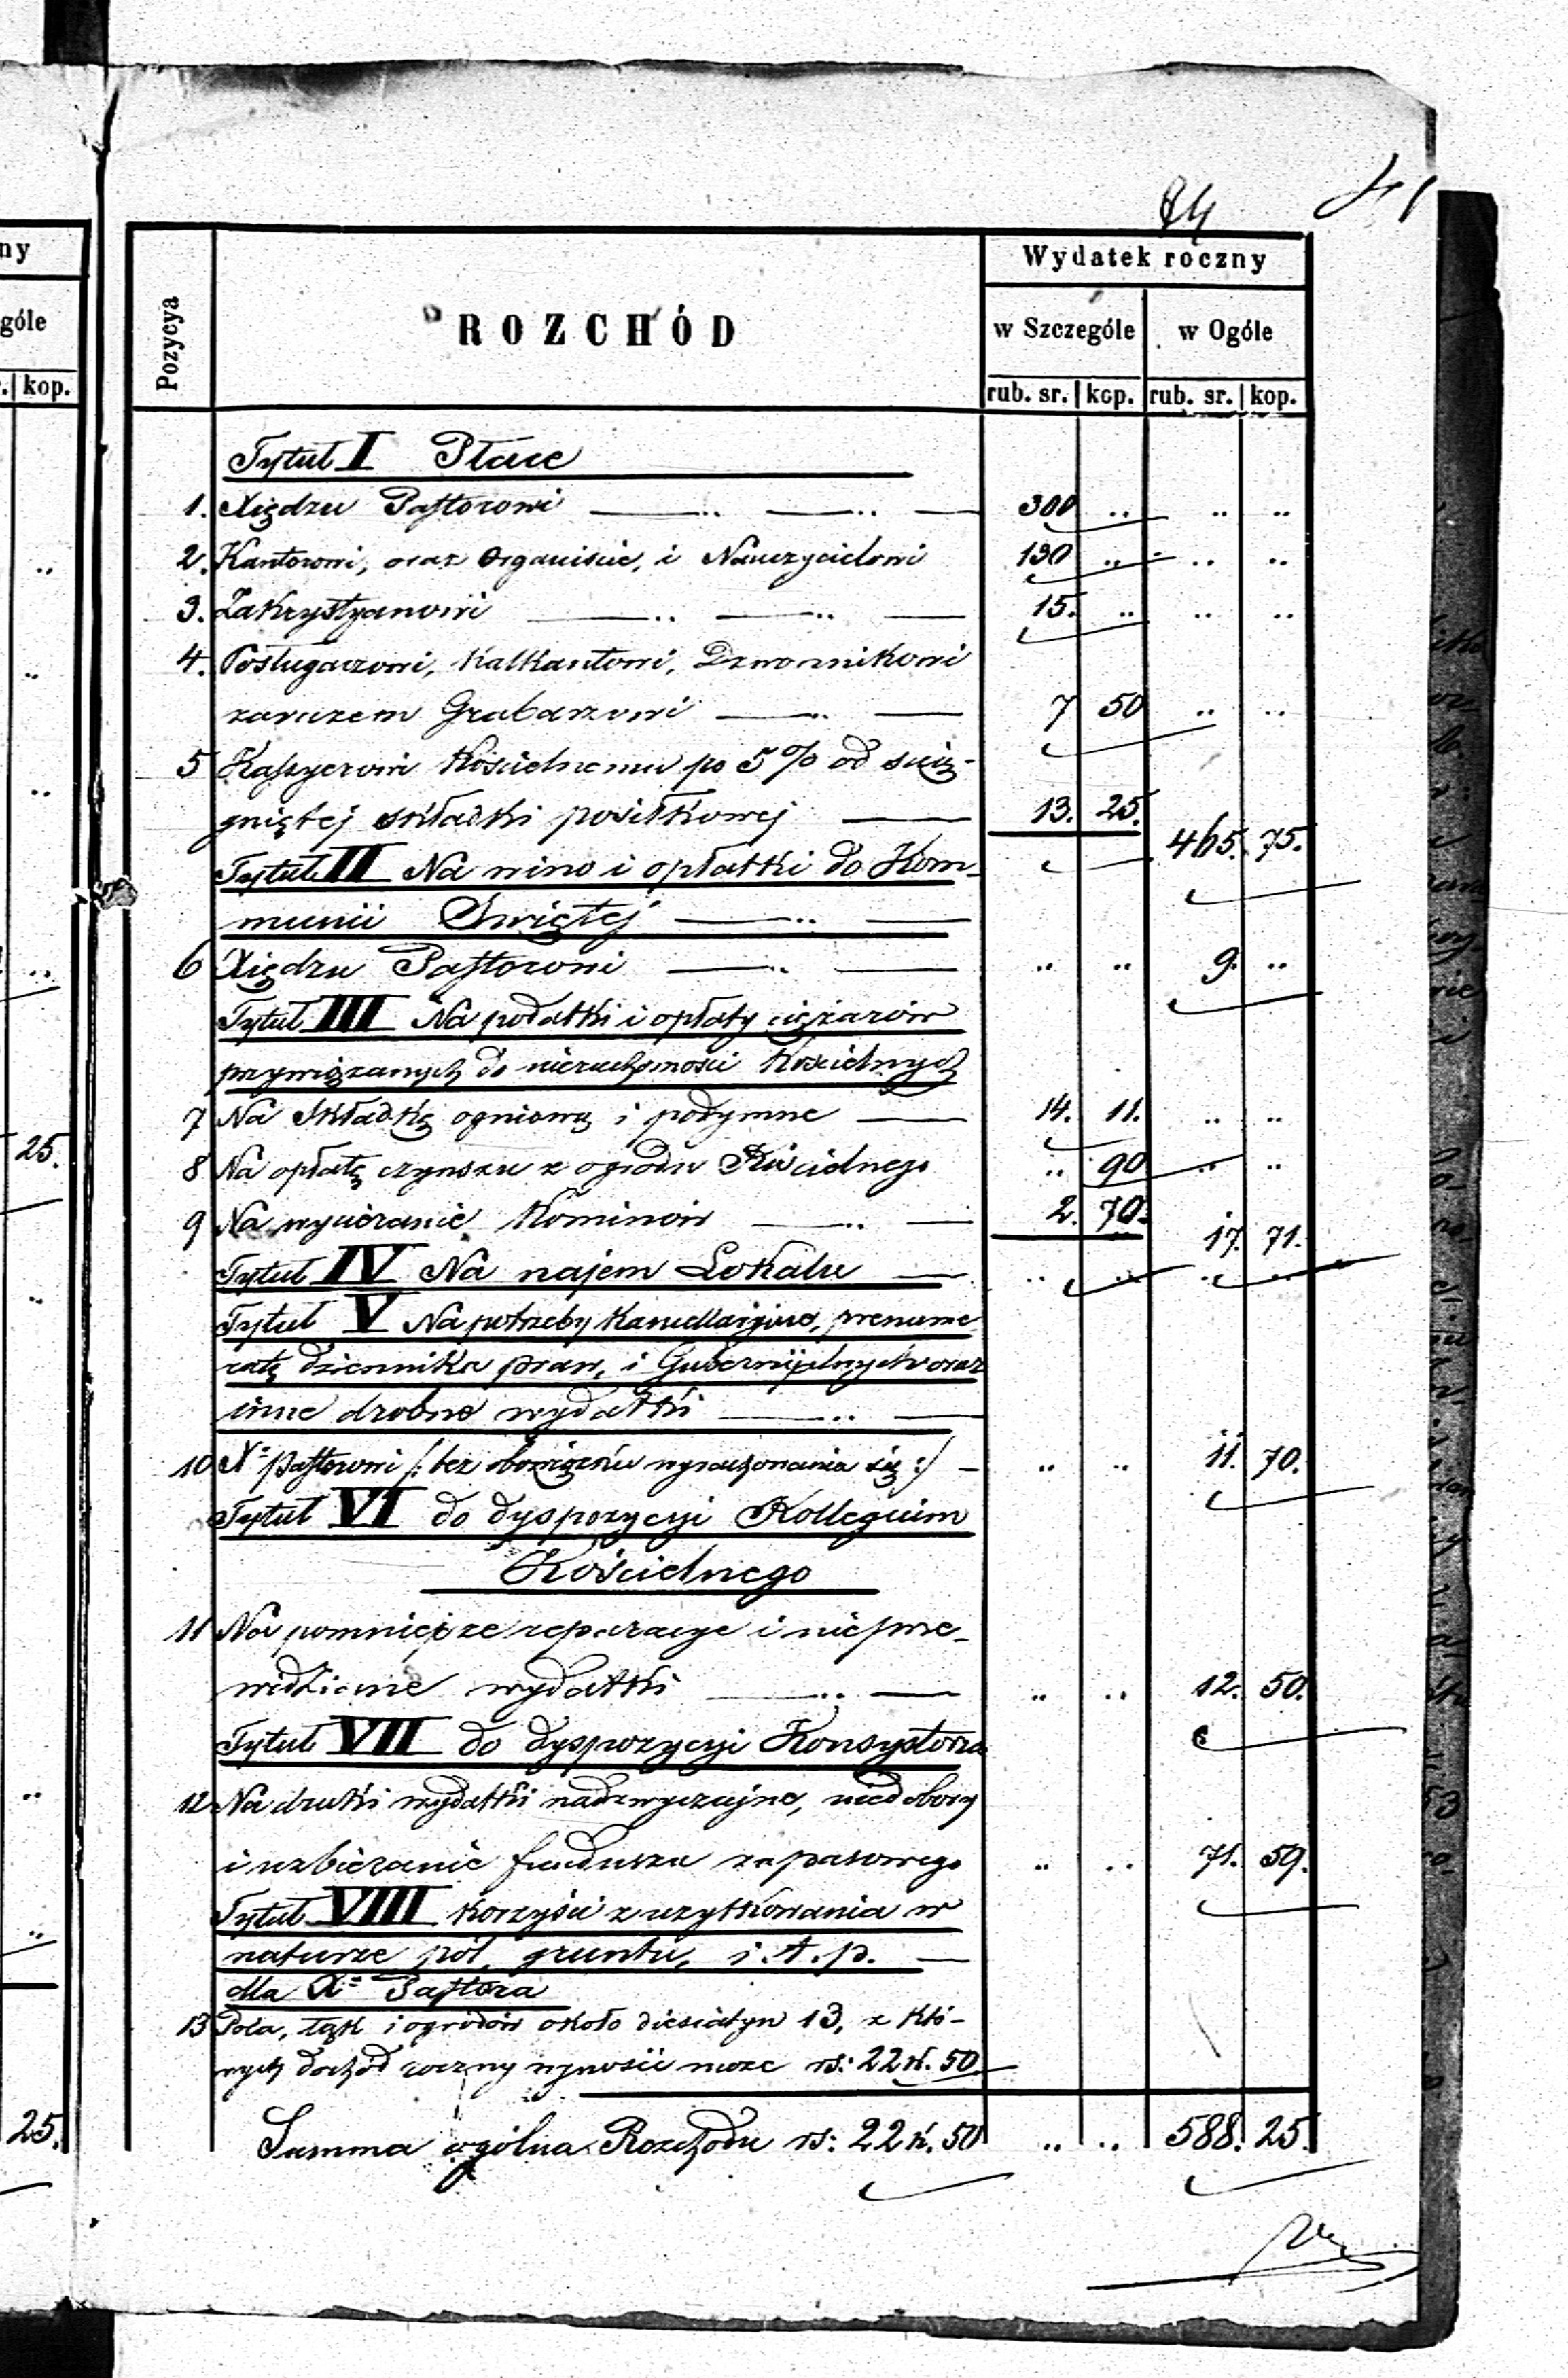 84
ny
góle
kop.
25.
25.
Pozycya
ROZCHÓD
Wydatek roczny
w Szczególe
w Ogóle
rub. sr. kop. rub. sr. kop.
Tytuł I Płace
1. Xiędzu Pastorowi —— .. —— .. —— 300 .. .. ..
2. Kantorowi, oraz Organiście, i Nauczycielowi 130 .. .. ..
3. Zakrystyanowi —— .. —— .. —— 15. .. .. ..
4. Posługaczowi, Kalkantowi, Dzwonnikowi
zarazem Grabarzowi —— .. —— 7 50 .. ..
5 Kassyerowi Kościelnemu po 5% od ścią-
gniętej składki posiłkowej —— 13. 25. 465. 75.
Tytuł II Na wino i opłatki do Kom-
munii Swiętej —— .. ——
6 Xiędzu Pastorowi —— .. —— .. .. 9. ..
Tytuł III Na podatki i opłaty ciężarów
przywiązanych do nieruchomości Kościelnych
7 Na Składkę ogniową i podymne —— 14. 11. .. ..
8 Na opłatę czynszu z ogrodu Kościelnego .. 90 .. ..
9 Na wycieranie Kominów —— .. —— 2. 70. 17. 71.
Tytuł IV Na najem Lokalu —— .. .. .. ..
Tytuł V Na potrzeby Kancellaryjne, prenume
ratę dziennika praw, i Gubernijalnych oraz
inne drobne wydatki —— .. ——
10 X= Pastorowi /: bez obowiązku wyrachowania się :/ — .. .. 11. 70.
Tytuł VI do dyspozycyi Kollegium
Kościelnego
11 Na pomniejsze reparacye i nieprze-
widziane wydatki —— .. —— .. .. 12. 50.
Tytuł VII do dyspozycyi Konsystorza
12 Na druki wydatki nadzwyczajne, niedobory
i uzbieranie funduszu zapasowego .. .. 71. 59.
Tytuł VIII Korzyści z użytkowania w
naturze pól, gruntu, i.t.p. ——
dla X= Pastora
13 Pola, łąk i ogrodów około diesiatyn 13, z któ-
rych dochód roczny wynosić może rs: 22 k. 50
Summa ogólna Rozchodu rs: 22 k. 50 .. .. 588. 25.